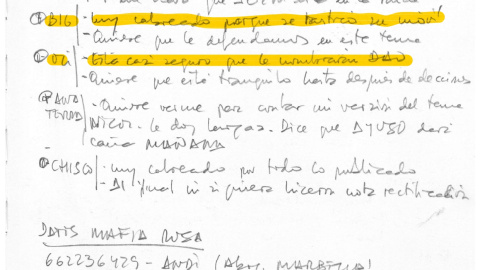 BIG - muy cabreado porque se rastreó su móvil
- Quiere que le defendamos en este tema
OLI - Está casi seguro que le nombrarán DAO
- Quiere que esté tranquilo hasta después de decisiones
ANA - Quiere verme para contar mi versión del tema
NICOL. le doy largas. Dice que AYUSO dará
caña MAÑANA
CHISCO - muy cabreado por todo lo publicado
- Al final ni siquiera hicieron nota rectificación
DATOS MAFIA RUSA
662236429 - ANDI (Abog. MARBELLA)